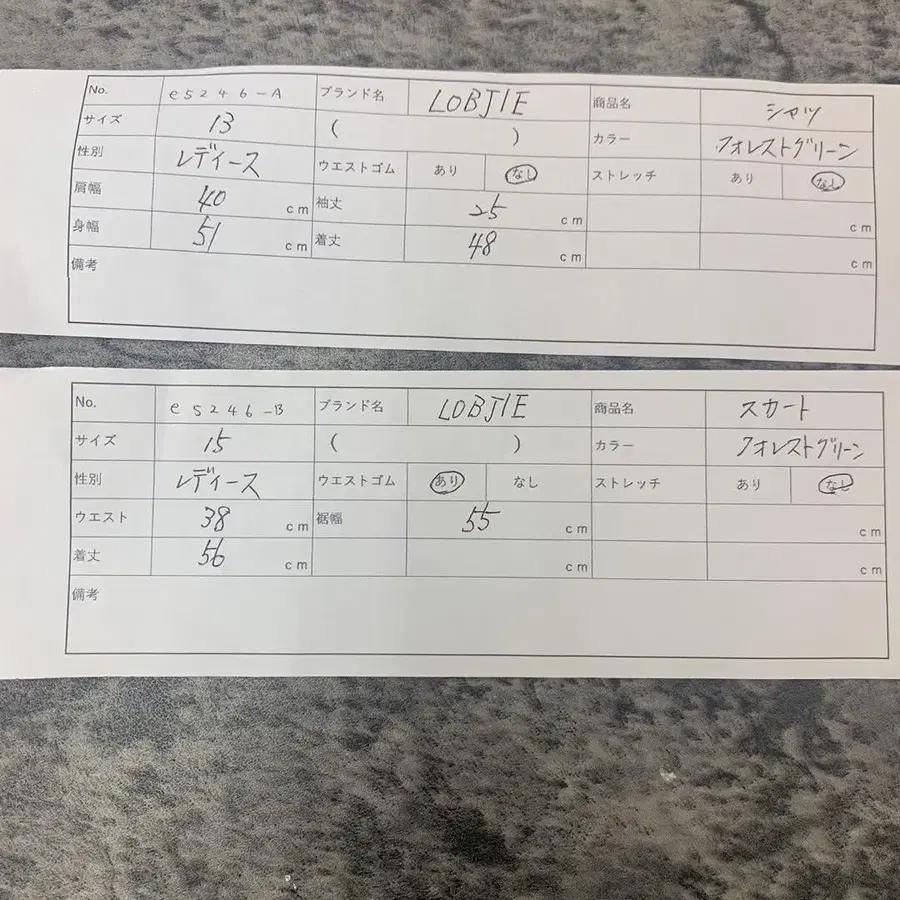 No. e5246-A ブランド名 LOBJIE 商品名 シャツ
サイズ 13 ( ) カラー フォレストグリーン
性別 レディース ウエストゴム あり なし ストレッチ あり なし
肩幅 40 cm 袖丈 25 cm cm
身幅 51 cm 着丈 48 cm cm
備考
No. e5246-B ブランド名 LOBJIE 商品名 スカート
サイズ 15 ( ) カラー フォレストグリーン
性別 レディース ウエストゴム あり なし ストレッチ あり なし
ウエスト 38 cm 裾幅 55 cm cm
着丈 56 cm cm cm
備考